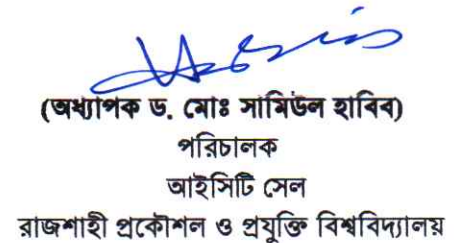 (অধ্যাপক ড. মোঃ সামিউল হাবিব)
পরিচালক
আইসিটি সেল
রাজশাহী প্রকৌশল ও প্রযুক্তি বিশ্ববিদ্যালয়